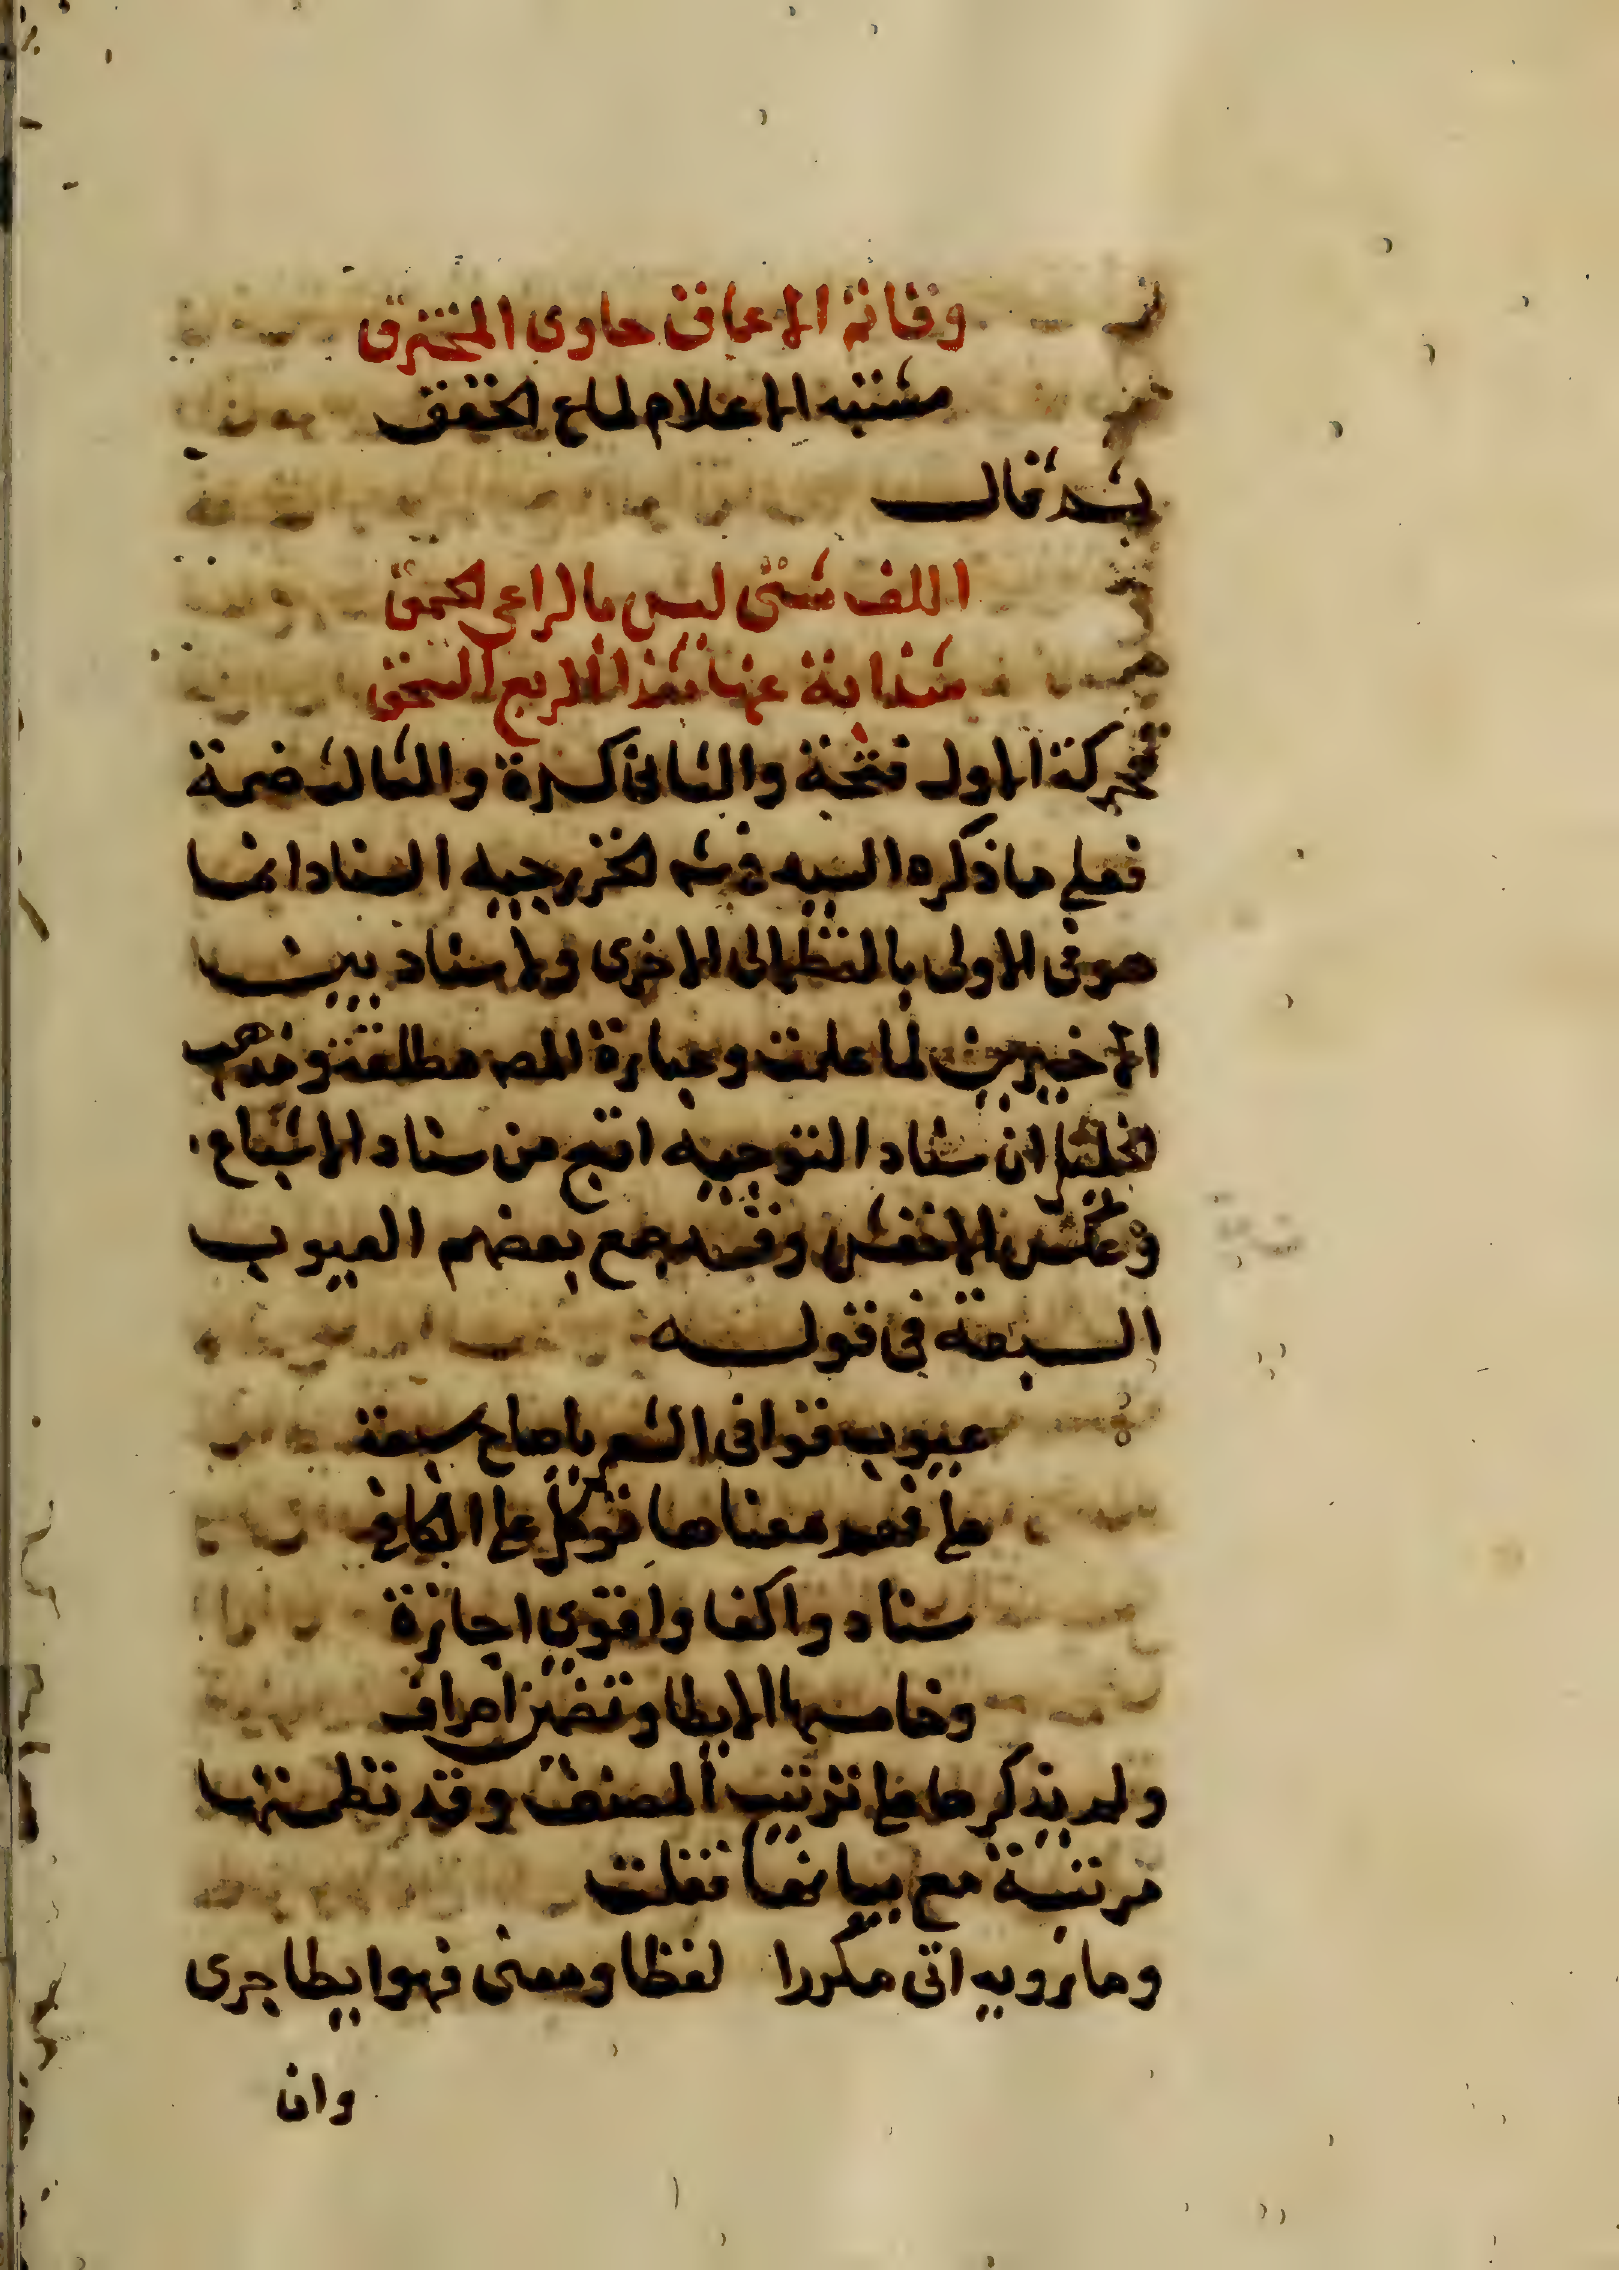 وقاتم الاعماق حاوى المخترق
مشتبه الاعلام لماع الخفق
ثم قال
الف شتى ليس بالراعى الحمق
شذابة عنها شذا الربع السحق
فحركة الاول فتحة والثانى كسرة والثالث ضمة
فعلى ما ذكره السيد فى شـ الخزرجيه السناد انما
هو فى الاولى بالنظر الى الاخرى ولا سناد بين
الاخيرين لما علمت وعبارة المصـ مطلقة ومذهب
الخليل ان سناد التوجيه اقبح من سناد الاشباع
وعكس الاخفش وقد جمع بعضهم العيوب
السبعة فى قوله
عيوب قوافى الشعر ياصاح سبعة
على فهم معناها توكل على الكافى
سناد واكفا واقوى اجازة
وخامسها الايطا وتضمين اصراف
ولم يذكرها على ترتيب المصنف وقد نظمتها
مرتبة مع بيانها فقلت
وما نرويه اتى مكررا لفظا ومعنى فهو ايطا جرى
وان